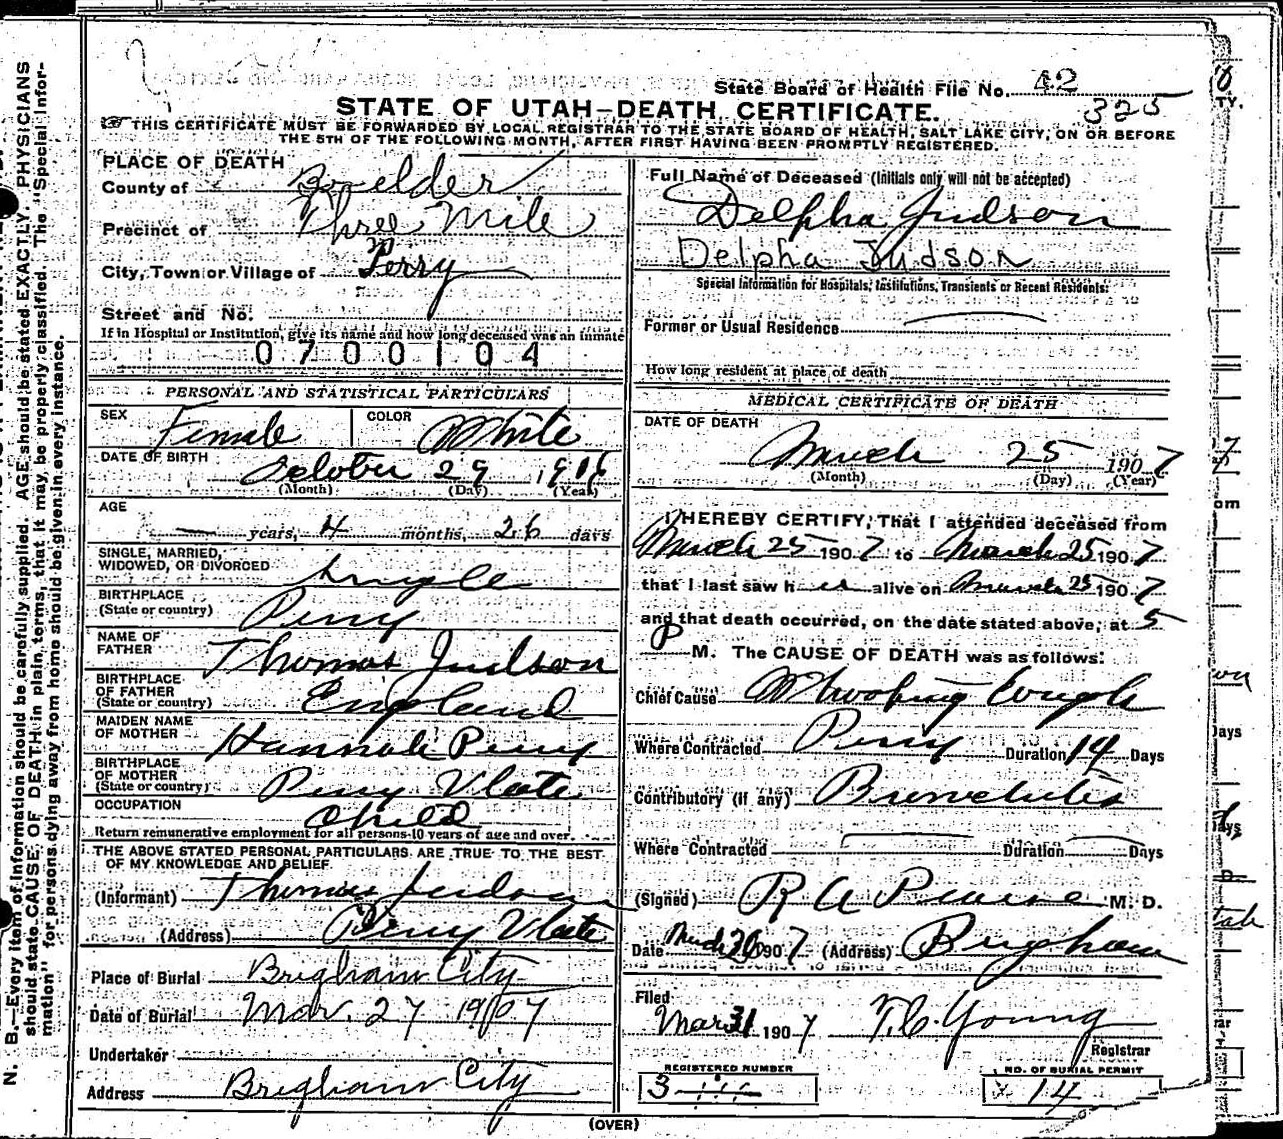 State Board of Health File No. 42
325
STATE OF UTAH—DEATH CERTIFICATE.
THIS CERTIFICATE MUST BE FORWARDED BY LOCAL REGISTRAR TO THE STATE BOARD OF HEALTH, SALT LAKE CITY, ON OR BEFORE
THE 5TH OF THE FOLLOWING MONTH, AFTER FIRST HAVING BEEN PROMPTLY REGISTERED.
PLACE OF DEATH
County of Boxelder
Precinct of Three Mile
City, Town or Village of Perry
Street and No.
If in Hospital or Institution, give its name and how long deceased was an inmate
0700104
PERSONAL AND STATISTICAL PARTICULARS
SEX Female COLOR White
DATE OF BIRTH October 29 1906
(Month) (Day) (Year)
AGE
— years, 4 months, 26 days
SINGLE, MARRIED,
WIDOWED, OR DIVORCED Single
BIRTHPLACE
(State or country) Perry
NAME OF
FATHER Thomas Judson
BIRTHPLACE
OF FATHER
(State or country) England
MAIDEN NAME
OF MOTHER Hannah Perry
BIRTHPLACE
OF MOTHER
(State or country) Perry Utah
OCCUPATION Child
Return remunerative employment for all persons 10 years of age and over.
THE ABOVE STATED PERSONAL PARTICULARS ARE TRUE TO THE BEST
OF MY KNOWLEDGE AND BELIEF.
(Informant) Thomas Judson
(Address) Perry Utah
Place of Burial Brigham City
Date of Burial Mar. 27 1907
Undertaker
Address Brigham City
Full Name of Deceased (Initials only will not be accepted)
Delpha Judson
Delpha Judson
Special Information for Hospitals, Institutions, Transients or Recent Residents:
Former or Usual Residence
How long resident at place of death
MEDICAL CERTIFICATE OF DEATH
DATE OF DEATH
March 25 1907
(Month) (Day) (Year)
I HEREBY CERTIFY, That I attended deceased from
March 25 1907 to March 25 1907
that I last saw her alive on March 25 1907
and that death occurred, on the date stated above, at 5
P M. The CAUSE OF DEATH was as follows:
Chief Cause Whooping Cough
Where Contracted Perry Duration 14 Days
Contributory (if any) Bronchitis
Where Contracted Duration Days
(Signed) R A Pearse M. D.
Date March 26 1907 (Address) Brigham
Filed
Mar 31 1907 T. C. Young
Registrar
REGISTERED NUMBER
3
NO. OF BURIAL PERMIT
14
(OVER)
N. B.—Every item of information should be carefully supplied. AGE should be stated EXACTLY. PHYSICIANS
should state CAUSE OF DEATH in plain terms, that it may be properly classified. The "Special Infor-
mation" for persons dying away from home should be given in every instance.